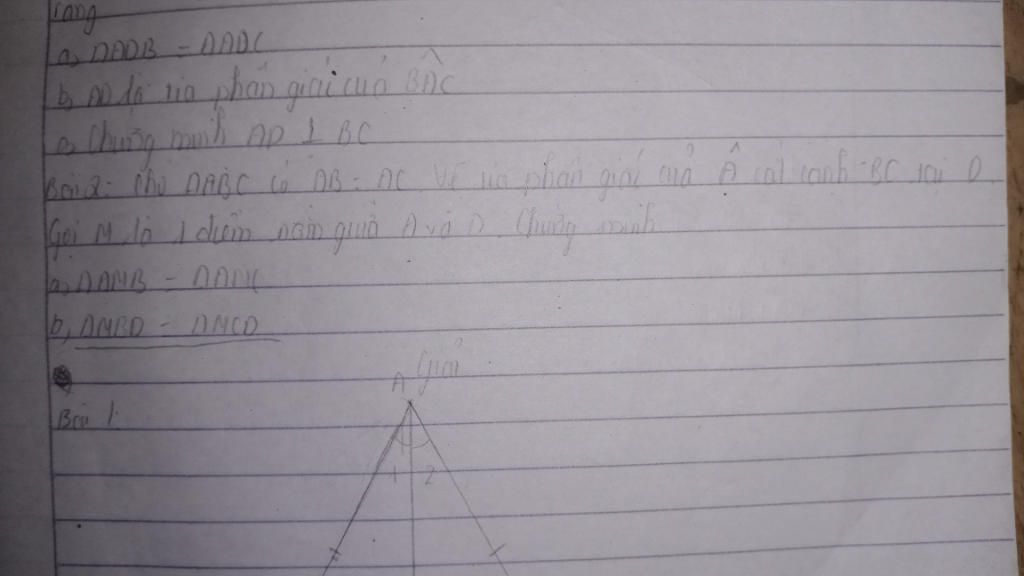 rang
a, ΔADB = ΔADC
b, AD là tia phân giác của BÂC
c, Chứng minh AD ⊥ BC
Bài 2: Cho ΔABC có AB = AC. Vẽ tia phân giác của Â cắt cạnh BC tại D.
Gọi M là 1 điểm nằm giữa A và D. Chứng minh
a, ΔAMB = ΔAMC
b, ΔMBD = ΔMCD
Giải
A
Bài 1:
1 2